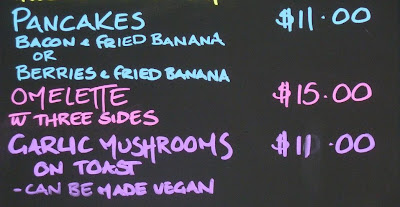 PANCAKES $11.00
BACON & FRIED BANANA
OR
BERRIES & FRIED BANANA
OMELETTE $15.00
W THREE SIDES
GARLIC MUSHROOMS $11.00
ON TOAST
- CAN BE MADE VEGAN